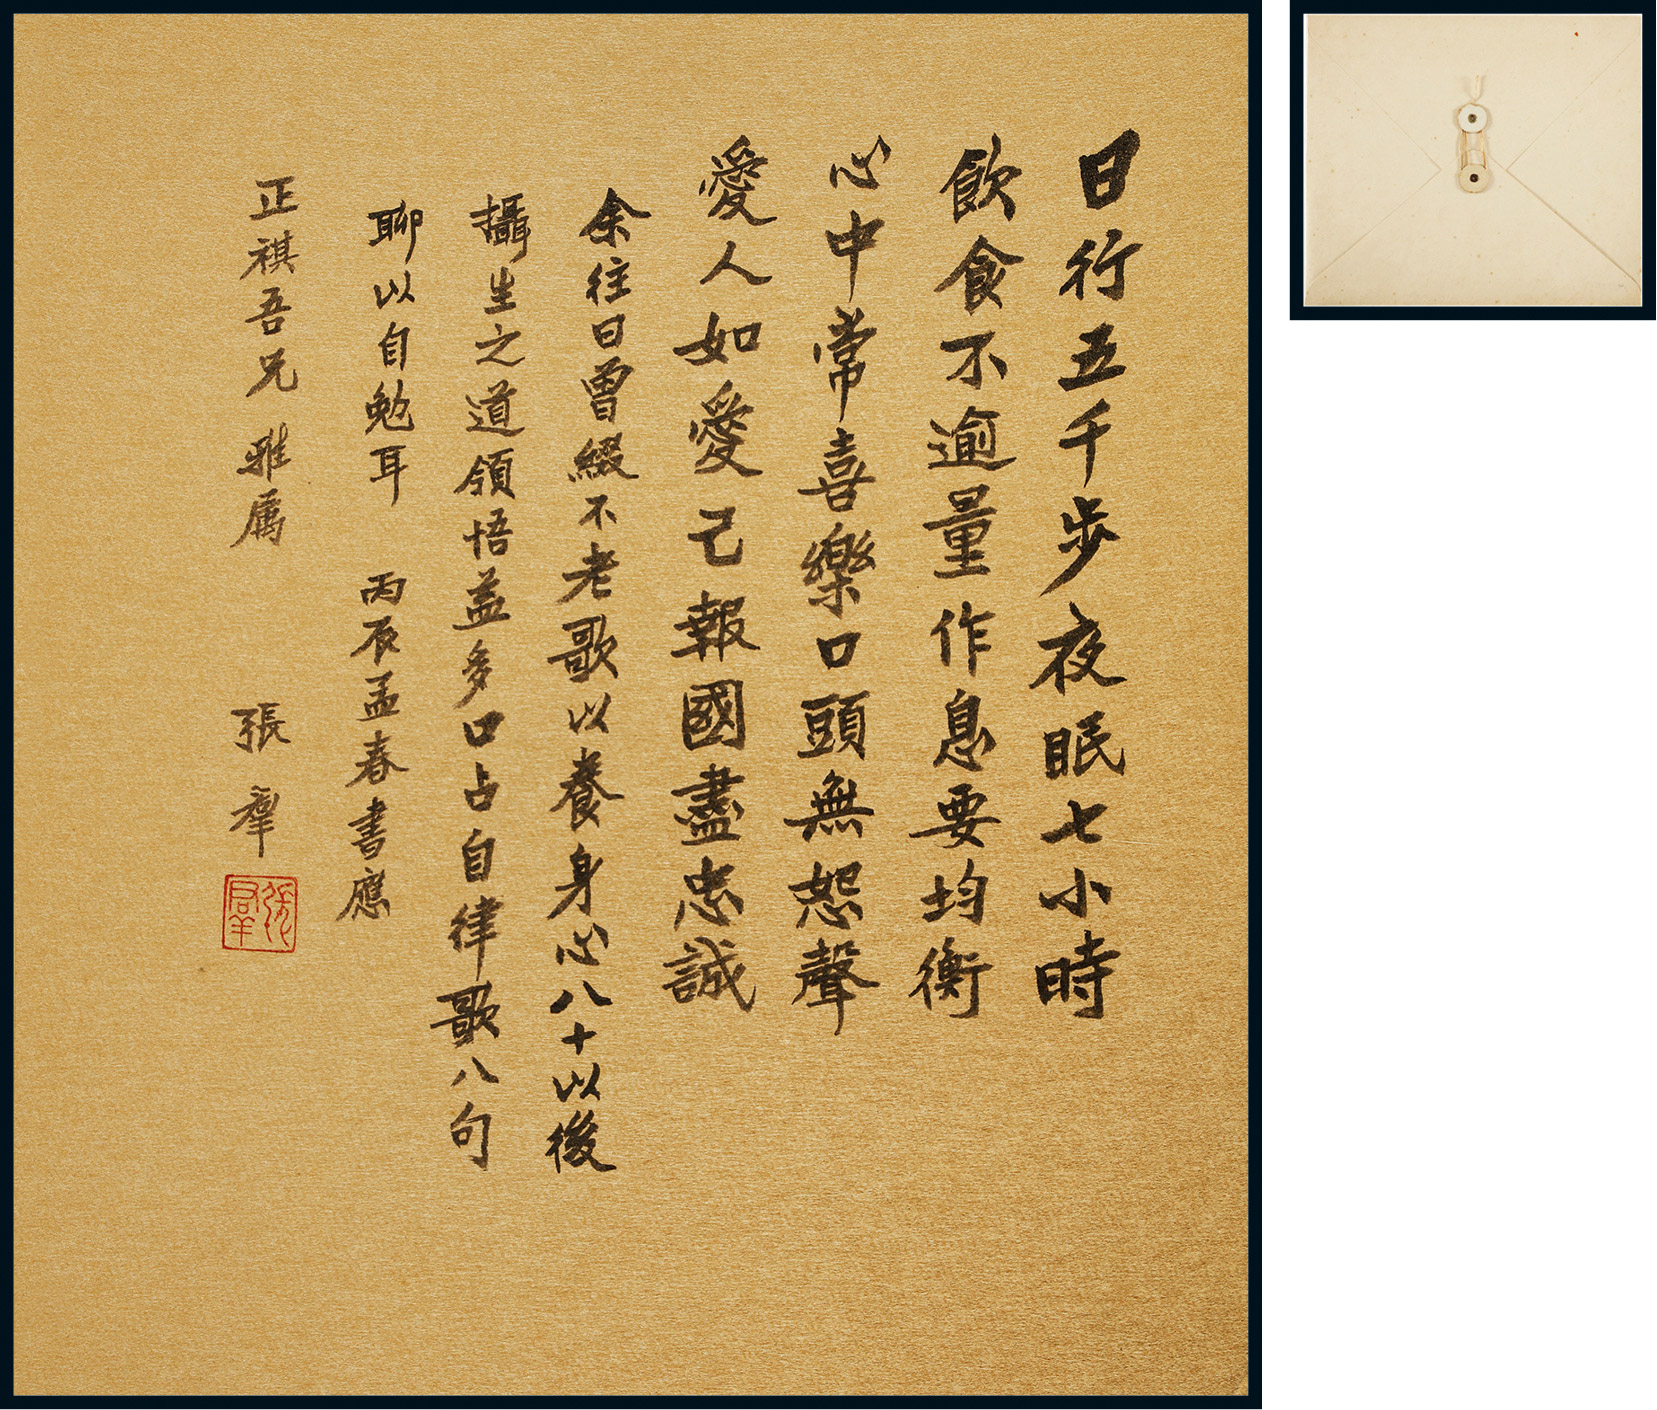 日行五千步夜眠七小時
飲食不逾量作息要均衡
心中常喜樂口頭無怨聲
愛人如愛己報國盡忠誠
余往日曾綴不老歌以養身心八十以後
攝生之道領悟益多口占自律歌八句
聊以自勉耳 丙辰孟春書應
正祺吾兄 雅屬 張羣
張羣